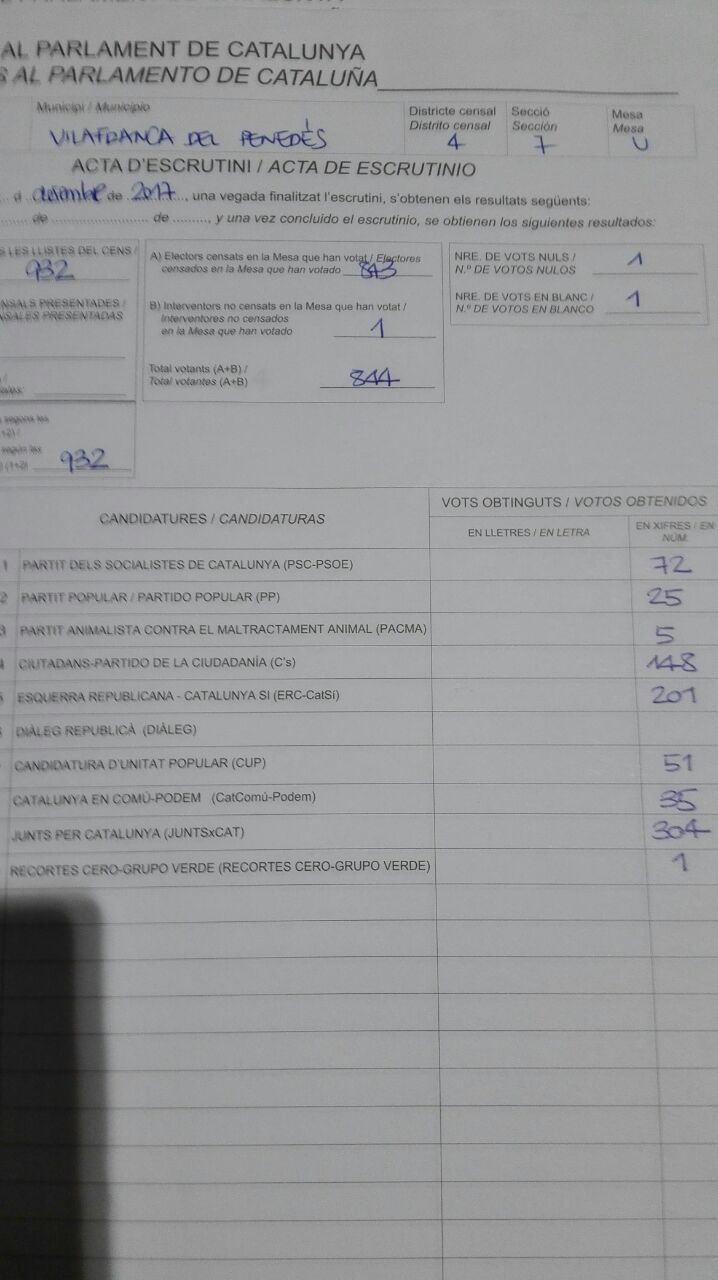 AL PARLAMENT DE CATALUNYA
S AL PARLAMENTO DE CATALUÑA
Municipi / Municipio
VILAFRANCA DEL PENEDÉS
Districte censal
Distrito censal
4
Secció
Sección
7
Mesa
Mesa
U
ACTA D'ESCRUTINI / ACTA DE ESCRUTINIO
d desembre de 2017, una vegada finalitzat l'escrutini, s'obtenen els resultats següents:
de de , y una vez concluido el escrutinio, se obtienen los siguientes resultados:
LES LLISTES DEL CENS /
932
NSALS PRESENTADES /
NSALES PRESENTADAS
segons les
según las
(1+2) 932
A) Electors censats en la Mesa que han votat / Electores
censados en la Mesa que han votado 843
B) Interventors no censats en la Mesa que han votat /
Interventores no censados
en la Mesa que han votado 1
Total votants (A+B) /
Total votantes (A+B) 844
NRE. DE VOTS NULS /
N.º DE VOTOS NULOS 1
NRE. DE VOTS EN BLANC /
N.º DE VOTOS EN BLANCO 1
CANDIDATURES / CANDIDATURAS
VOTS OBTINGUTS / VOTOS OBTENIDOS
EN LLETRES / EN LETRA
EN XIFRES / EN
NÚM.
1 PARTIT DELS SOCIALISTES DE CATALUNYA (PSC-PSOE) 72
2 PARTIT POPULAR / PARTIDO POPULAR (PP) 25
3 PARTIT ANIMALISTA CONTRA EL MALTRACTAMENT ANIMAL (PACMA) 5
4 CIUTADANS-PARTIDO DE LA CIUDADANÍA (C's) 148
5 ESQUERRA REPUBLICANA - CATALUNYA SI (ERC-CatSí) 201
DIÀLEG REPUBLICÀ (DIÀLEG)
CANDIDATURA D'UNITAT POPULAR (CUP) 51
CATALUNYA EN COMÚ-PODEM (CatComú-Podem) 35
JUNTS PER CATALUNYA (JUNTSxCAT) 304
RECORTES CERO-GRUPO VERDE (RECORTES CERO-GRUPO VERDE) 1